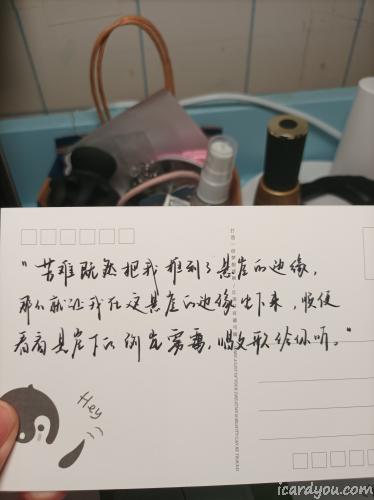 "苦难既然把我推到了悬崖的边缘,
那么就让我在这悬崖的边缘坐下来,顺便
看看悬崖下的流岚雾霭,唱支歌给你听。"
Hey
icardyou.com